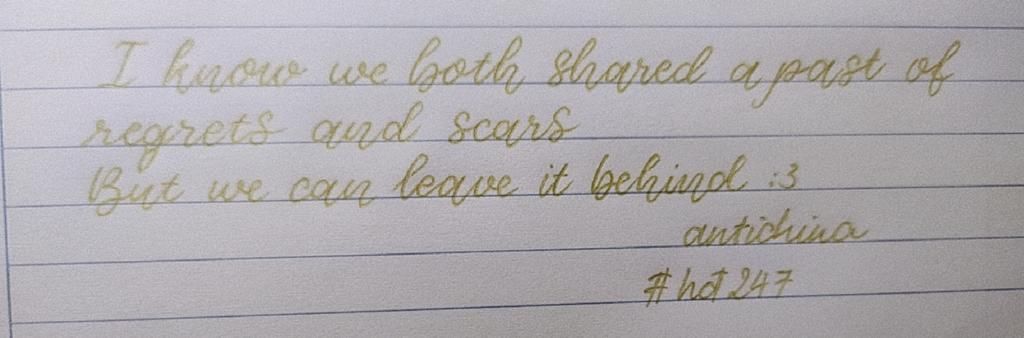 I know we both shared a past of
regrets and scars
But we can leave it behind :3
antichina
#hot247